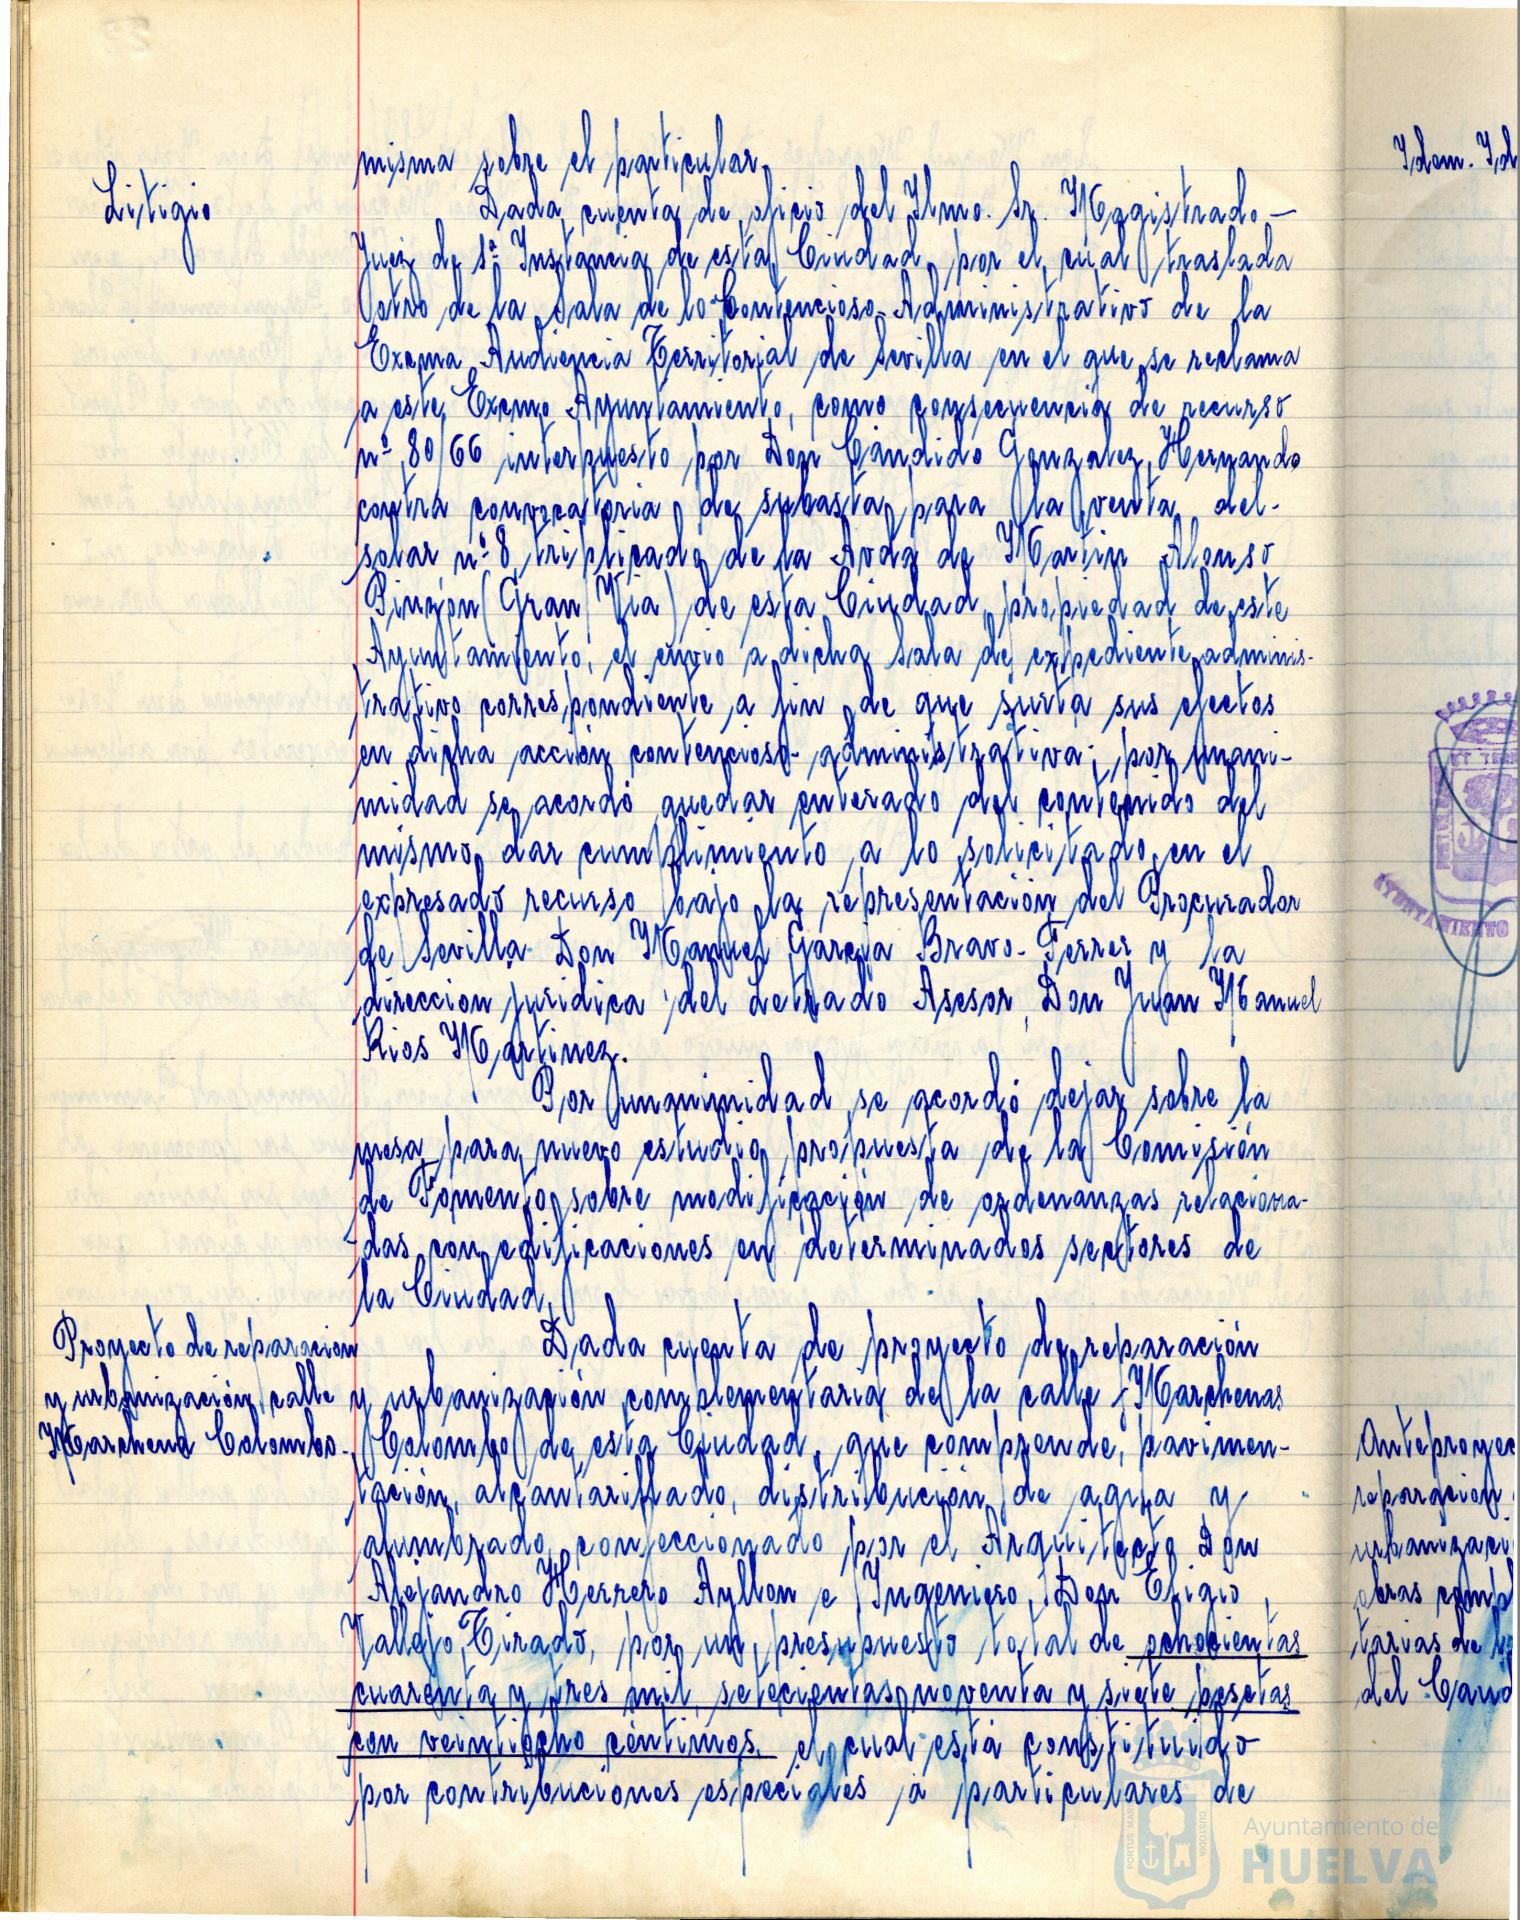 misma sobre el particular.
Litigio
Dada cuenta de oficio del Ilmo. Sr. Magistrado-
Juez de 1ª Instancia de esta Ciudad, por el cual traslada
otro de la Sala de lo Contencioso-Administrativo de la
Excma Audiencia Territorial de Sevilla en el que se reclama
a este Excmo Ayuntamiento, como consecuencia de recurso
nº 80/66 interpuesto por Don Cándido Gonzalez Hernando
contra convocatoria de subasta para la venta del-
solar nº 8 triplicado de la Avda de Martin Alonso
Pinzón (Gran Via) de esta Ciudad, propiedad de este
Ayuntamiento, el envio a dicha Sala de expediente adminis-
trativo correspondiente a fin de que surta sus efectos
en dicha acción contencioso-administrativa; por unani-
midad se acordó quedar enterado del contenido del
mismo, dar cumplimiento a lo solicitado en el
expresado recurso bajo la representación del Procurador
de Sevilla Don Manuel Garcia Bravo-Ferrer y la
direccion juridica del Letrado Asesor, Don Juan Manuel
Rios Martinez.
Por unanimidad se acordó dejar sobre la
mesa para nuevo estudio propuesta de la Comisión
de Fomento sobre modificación de ordenanzas relaciona-
das con edificaciones en determinados sectores de
la Ciudad.
Proyecto de reparacion
y urbanización calle
Marchena Colombo.
Dada cuenta de proyecto de reparación
y urbanización complementaria de la calle Marchenas
Colombo de esta Ciudad, que comprende, pavimen-
tación, alcantarillado, distribución de agua y
alumbrado, confeccionado por el Arquitecto Don
Alejandro Herrero Ayllon e Ingeniero, Don Eligio
Vallejo Tirado, por un presupuesto total de ochocientas
cuarenta y tres mil, setecientas noventa y siete pesetas
con veintiocho céntimos, el cual está constituido
por contribuciones especiales a particulares de
Idem. Id
Anteproyec
reparación
urbanizaci
obras compl
tarias de
AYUNTAMIENTO
PORTUS MARIS
CUSTODIA
Ayuntamiento de
HUELVA